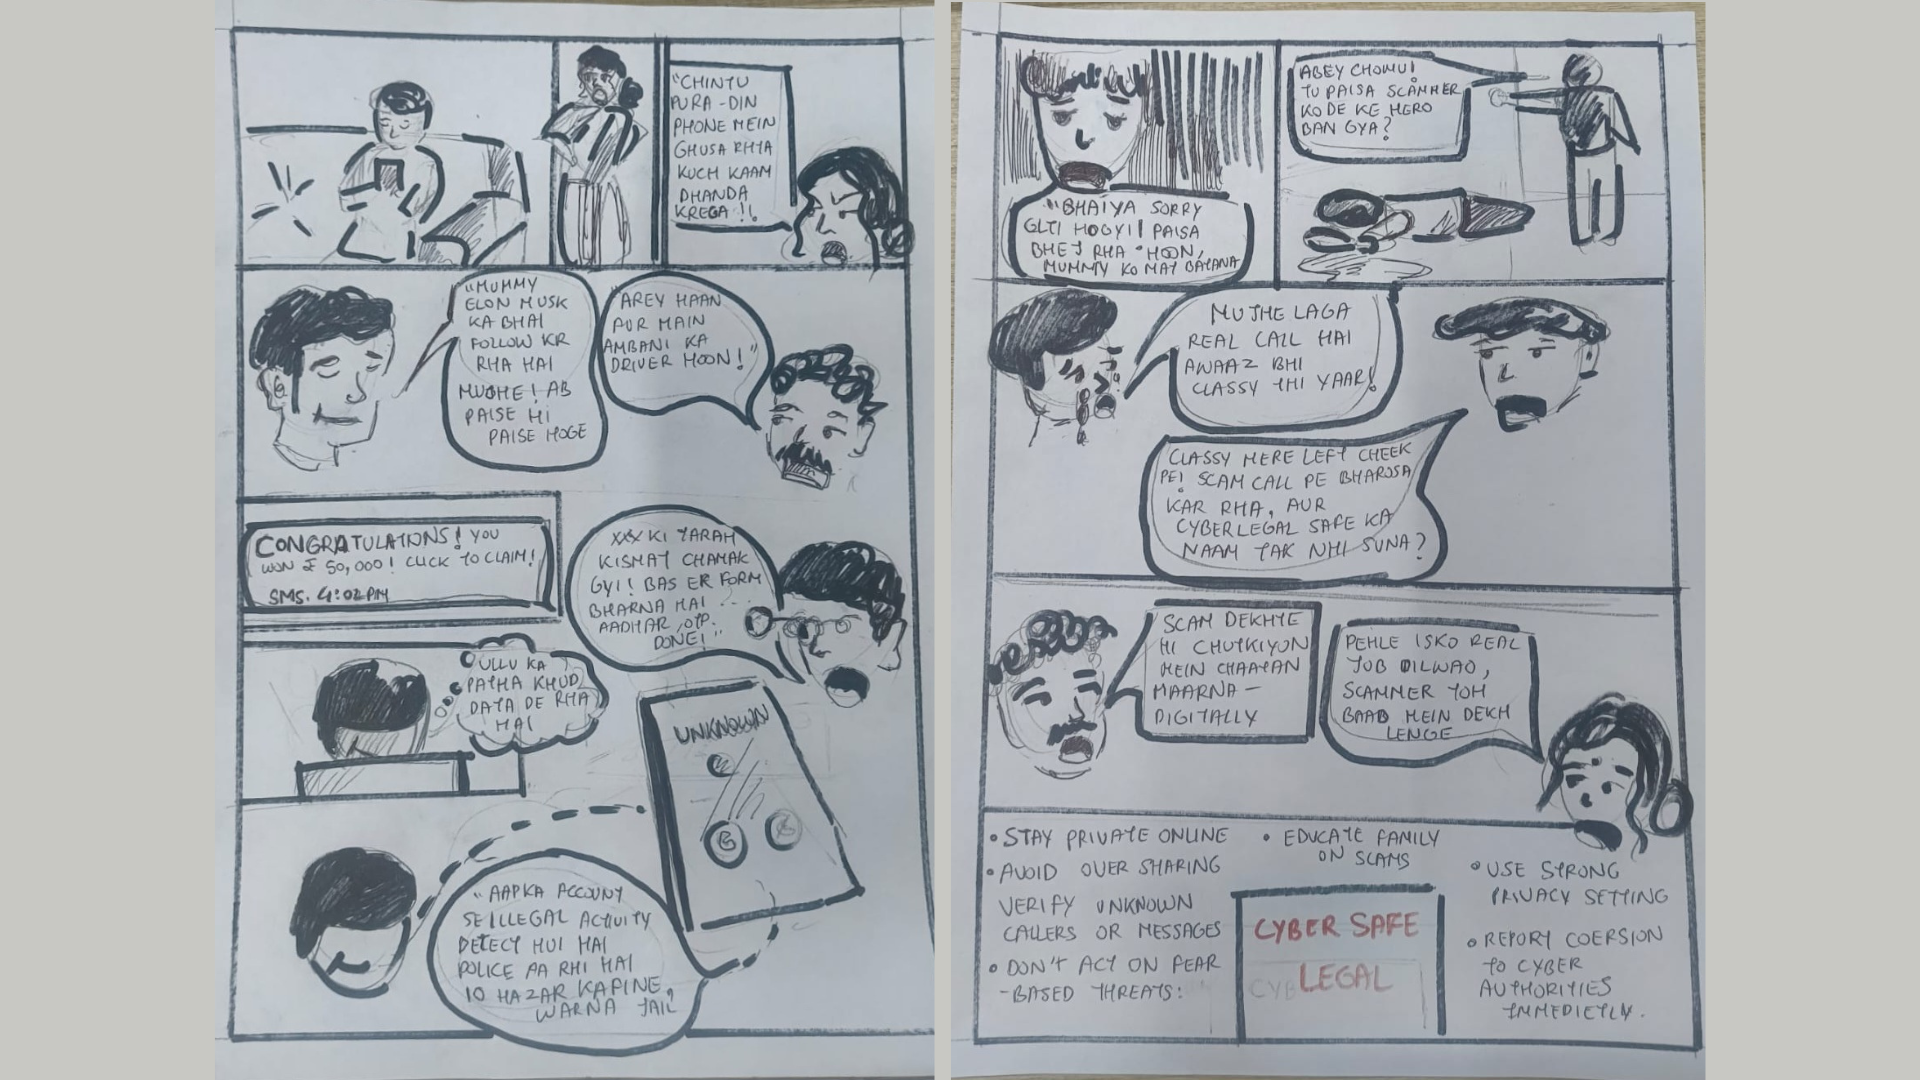 "CHINTU
PURA-DIN
PHONE MEIN
GHUSA RHTA
KUCH KAAM
DHANDA
KREGA!!
"MUMMY
ELON MUSK
KA BHAI
FOLLOW KR
RHA HAI
MUGHE! AB
PAISE HI
PAISE HOGE
"AREY HAAN
AUR MAIN
AMBANI KA
DRIVER HOON!"
CONGRATULATIONS! YOU
WON ₹ 50,000! CLICK TO CLAIM!
SMS. 4:02PM
XXX KI TARAH
KISMAT CHAMAK
GYI! BAS EK FORM
BHARNA HAI ..
AADHAR, OTP.
DONE!"
ULLU KA
PATHA KHUD
DATA DE RHA
HAI
UNKNOWN
"AAPKA ACCOUNT
SE ILLEGAL ACTIVITY
DETECT HUI HAI
POLICE AA RHI HAI
10 HAZAR KA FINE,
WARNA JAIL?
"BHAIYA SORRY
GLTI HOGYI! PAISA
BHEJ RHA HOON,
MUMMY KO MAT BATANA
ABEY CHOMU!
TU PAISA SCAMMER
KO DE KE HERO
BAN GYA?
MUJHE LAGA
REAL CALL HAI
AWAAZ BHI
CLASSY THI YAAR!
CLASSY MERE LEFT CHEEK
PE! SCAM CALL PE BHAROSA
KAR RHA, AUR
CYBERLEGAL SAFE KA
NAAM TAK NHI SUNA?
SCAM DEKHTE
HI CHUTKIYON
MEIN CHAATAN
MAARNA -
DIGITALLY
PEHLE ISKO REAL
JOB DILWAO,
SCAMMER TOH
BAAD MEIN DEKH
LENGE
• STAY PRIVATE ONLINE
• AVOID OVER SHARING
VERIFY UNKNOWN
CALLERS OR MESSAGES
• DON'T ACT ON FEAR
-BASED THREATS:
• EDUCATE FAMILY
ON SCAMS
CYBER SAFE
LEGAL
• USE STRONG
PRIVACY SETTING
• REPORT COERSION
TO CYBER
AUTHORITIES
IMMEDIETLY.